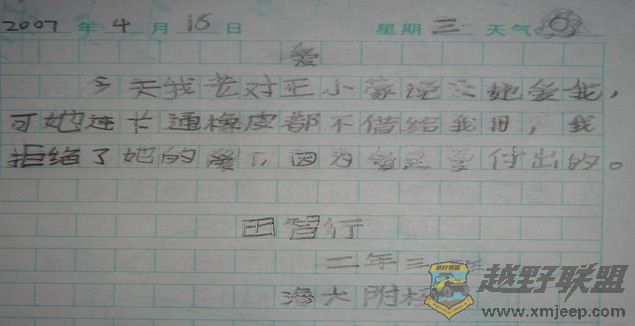 2007 年 4 月 日 星期 三 天气
爱
今天我 对王小蒙说 她爱我，
可她连卡通橡皮都不借给我用，我
拒绝了她的爱，因为爱是要付出的。
田智行
二年三
海大附校
越野联盟
www.xmjeep.com